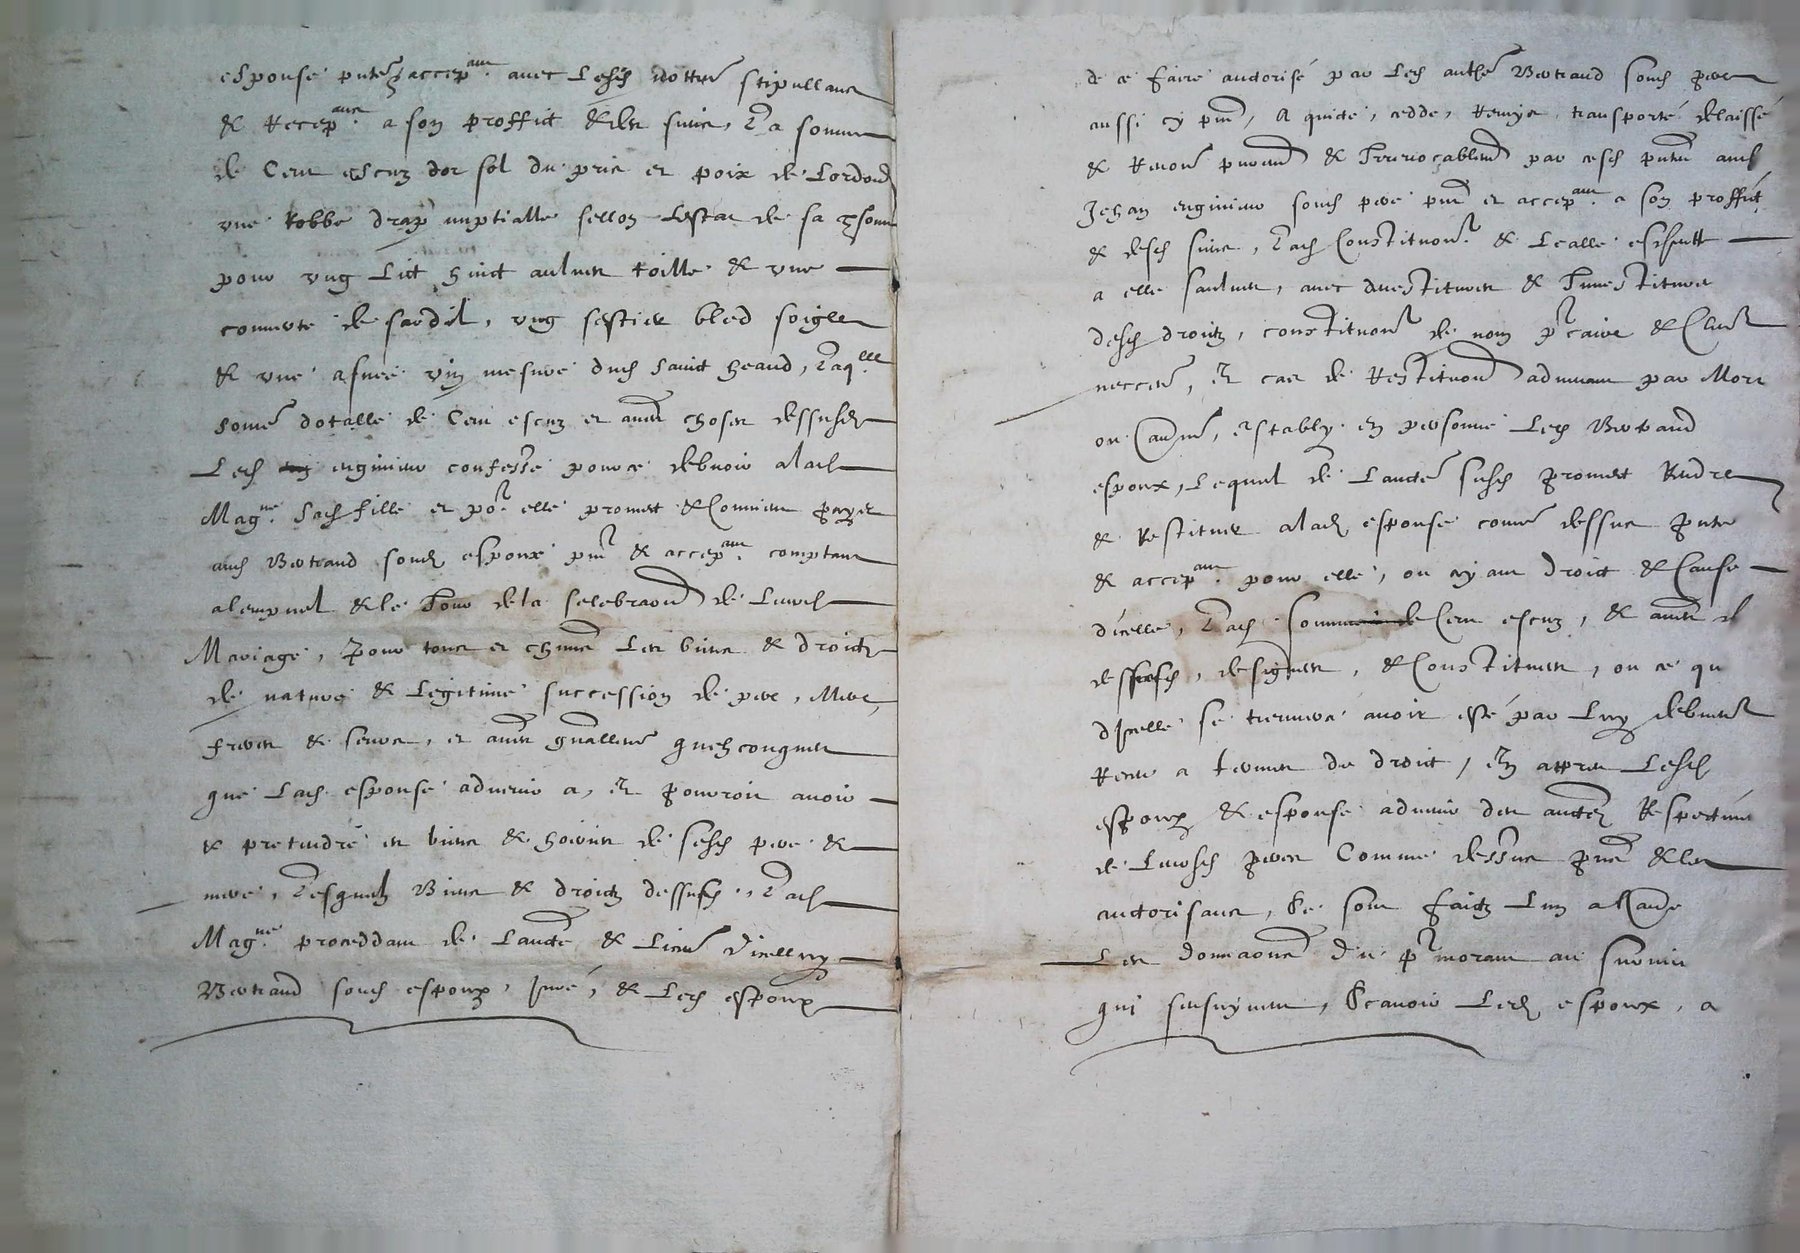 esponse pnte & accepante avec lesd nottere stipullans
& recepans a son proffict & des siens, La somme
de Cent escuz dor sol du pris et poix de Lordon
une Robbe drap nuptialle sellon Lestat de sa psonne
pour ung Lict huict aulnes toille & une
couverte de sardil, ung sestier bled soigle
& une asnee vin mesure dud Sainct heand, Laqlle
some dotalle de Cent escuz et autres choses dessusd
Led enginieu confesse pource debvoir a lad
Magne sad fille et por elle promect & Convient payer
aud Bertrand soud espoux pnt & acceptant comptans
alempnel & le Jour de la selebraon de Leurd
Mariage, Pour tous et chnns Les biens & droictz
de nature & Legitime succession de pere, Mere,
freres & seurs, et autres gnallemt quelzconques
que Lad esponse advenir a, et pourroit avoir
& pretendre es biens & hoiries de sesd pere &
mere, Lesquelz Biens & droictz dessusd, Lad
Magne proceddant de Lauctte & Licence dicelluy
Bertrand soud espoux, Jure, & Led espoux
de ce faire auctorisé par Led anthe Bertrand soud pere
aussi cy pnt, A quicté, cedde, Remys, transporté delaissé
& Renoncé puremt & Irrevocablemt par cesd pntes aud
Jehan enginieu soud pere pnt et acceptant a son proffict
& desd siens, Lad Constituon & Lealle escheutte
a elle saulves, avec devestitures & Investitures
desd droictz, constituon de nom prcaire & Clauses
neccres, Et cas de Restituon advenant par Mort
ou Aultremt, estably en personne Led Bertrand
espoux, Lequel de Lauctte susd promect Rendre
& Restituer a lad esponse come dessus pnte
& acceptant pour elle, ou ayant droict & Cause
dicelle, Lad somme de Cent escuz, & autres d
dessusd, designees, & Constituees, ou ce qu
dicelle se treuvera avoir esté par Luy debuemt
Receu a termes de droict, Et apres Lesd
espoux & esponse advenir des auctez Respectives
de Leursd peres Comme dessus pns & les
auctorisans, Se sont faictz Lun a Laue
Les donnaons du prmorant au survivt
qui sensuyvent, Scavoir Led espoux, a